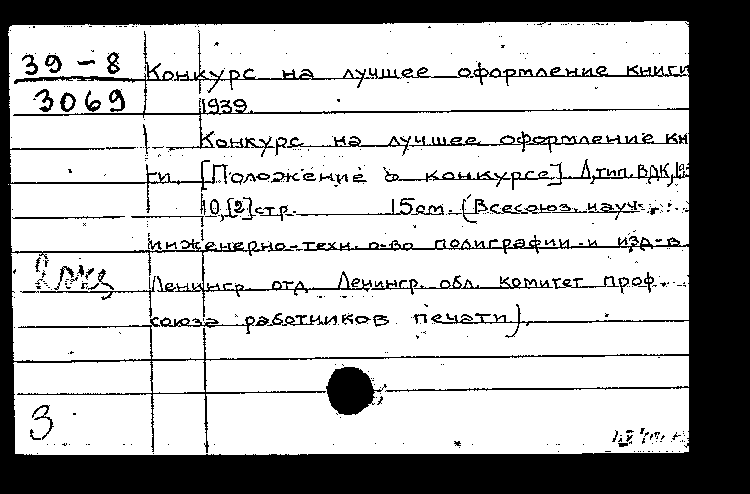 39-8
3069
Конкурс на лучшее оформление книги
1939.
Конкурс на лучшее оформление кн
ги. [Положение о конкурсе] Л, тип. ВДК, 193
10,[2]стр. 15см. (Всесоюз. науч.
инженерно-техн. о-во полиграфии и изд-в
Ленингр. отд. Ленингр. обл. комитет проф.
союза работников печати).
2 экз
3